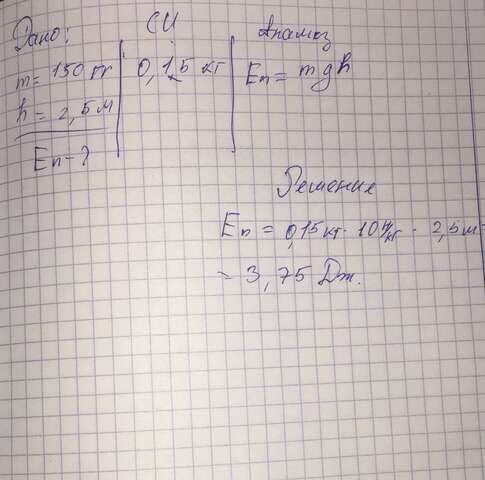 Дано:
m = 150 гг
h = 2,5 м
Eп-?
СИ
0,15 кг
Анализ
Eп = mgh
Решение
Eп = 0,15 кг · 10 Н/кг · 2,5 м =
= 3,75 Дж.